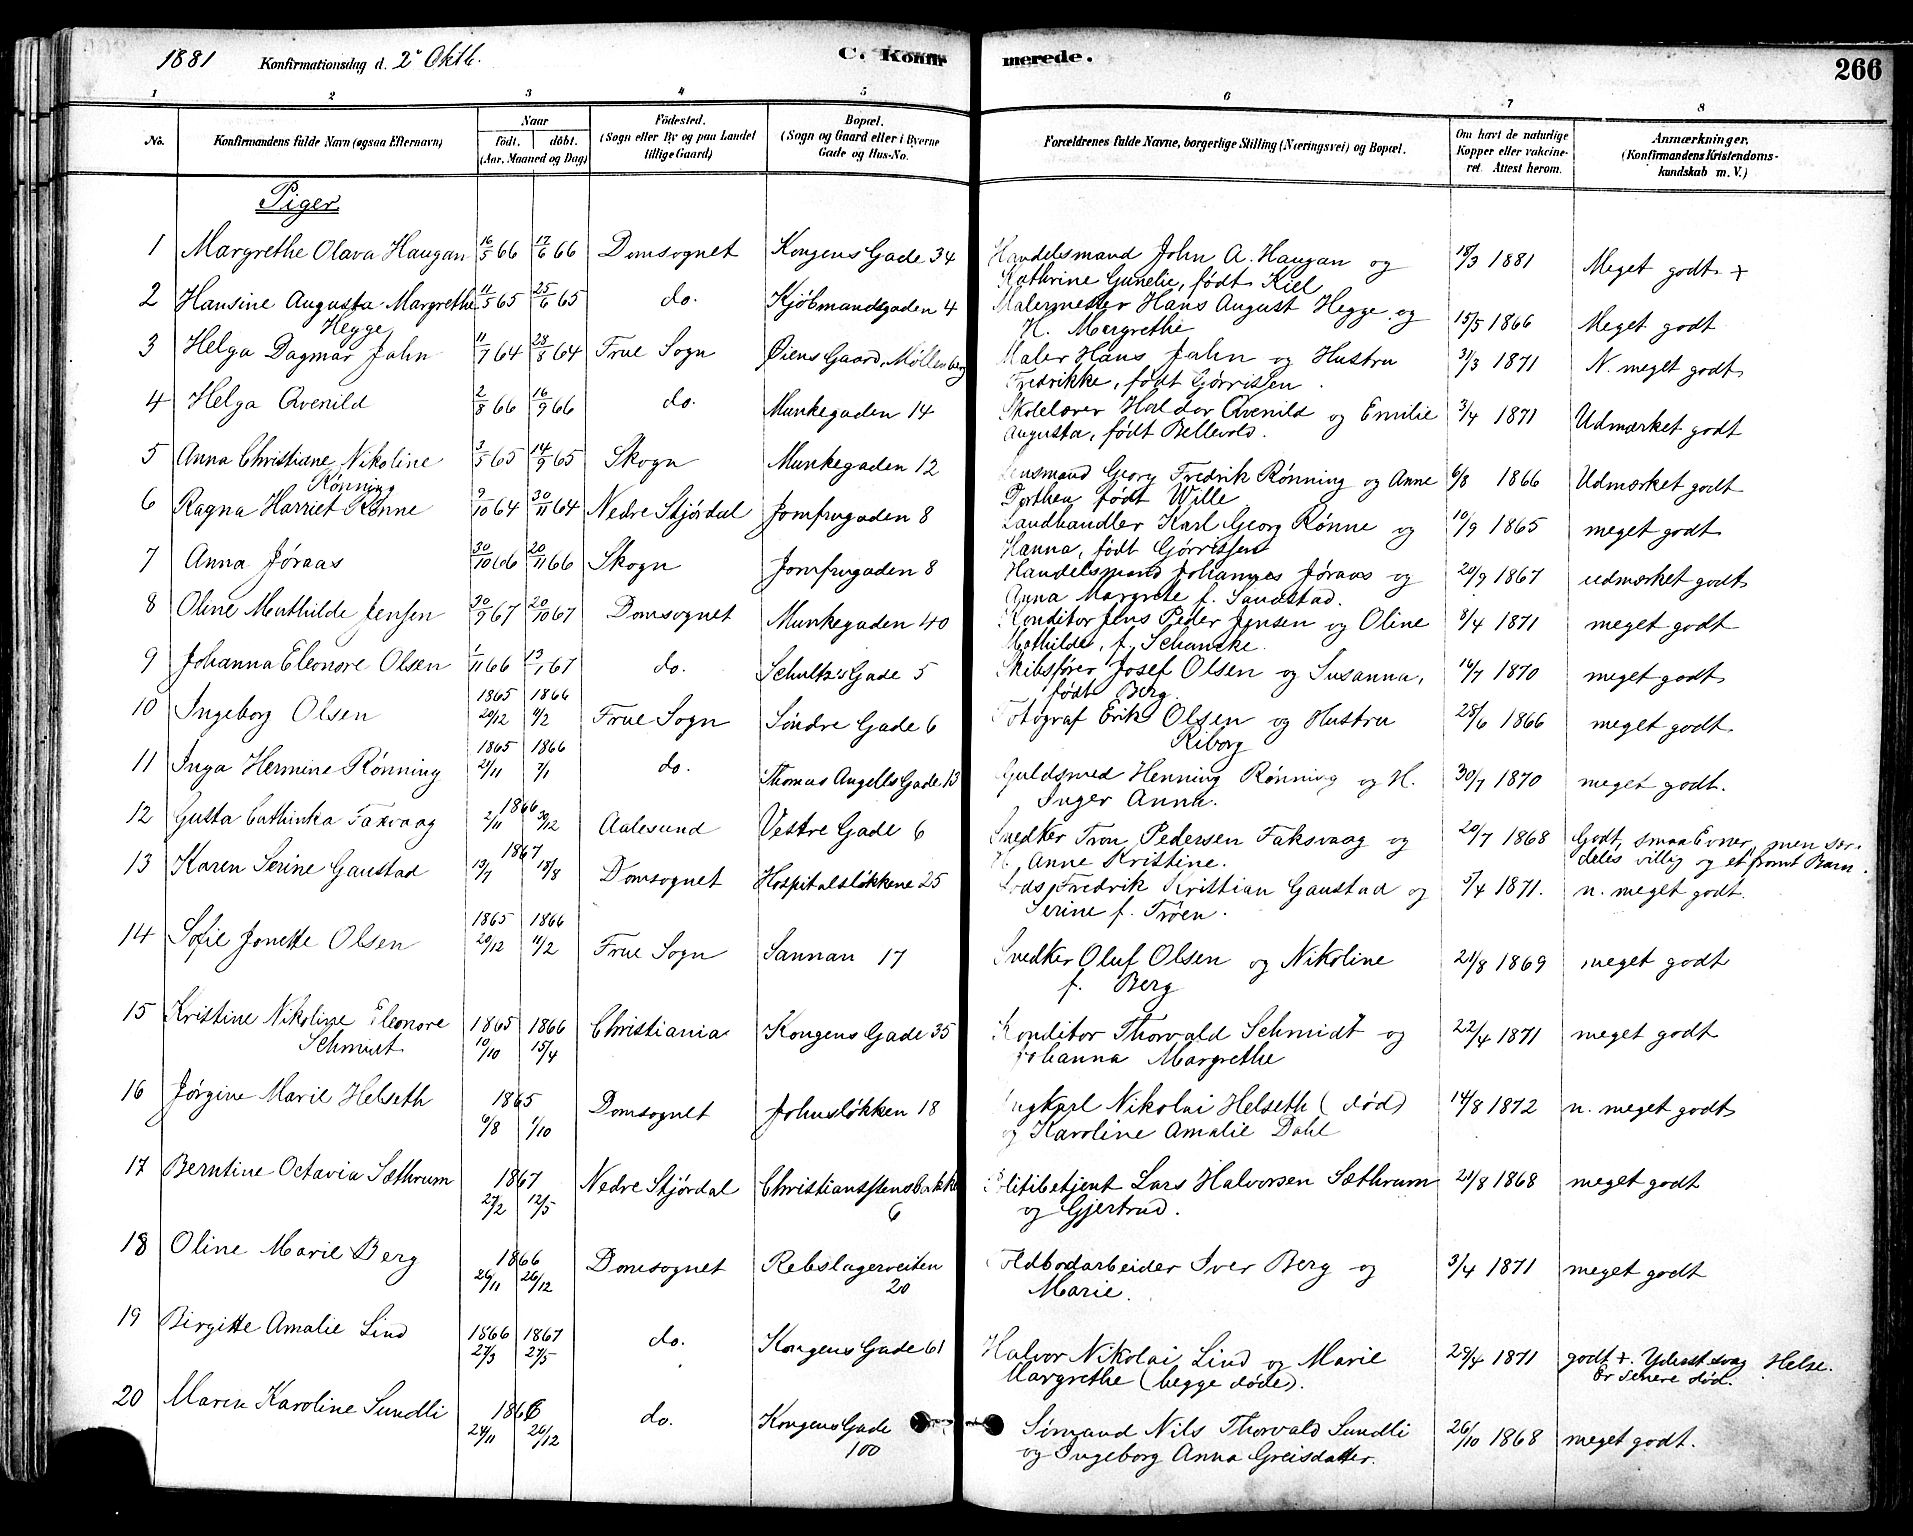 1881 Konfirmationsdag d. 2' Oktb. C. Konfirmerede. 266
1 2 3 4 5 6 7 8
No. Konfirmandens fulde Navn (ogsaa Efternavn) Naar født, døbt. (Aar, Maaned og Dag) Fødested. (Sogn eller By og paa Landet tillige Gaard) Bopæl. (Sogn og Gaard eller i Byerne Gade og Hus-No. Forældrenes fulde Navne, borgerlige Stilling (Næringsvei) og Bopæl. Om havt de naturlige Kopper eller vakcineret. Attest herom. Anmærkninger. (Konfirmandens Kristendomskundskab m. V.)
Piger
1 Margrethe Olava Haugan 16/5 66 17/6 66 Domsognet Kongens Gade 34 Handelsmand John A. Haugan og 18/3 1881 Meget godt +
Kathrine Gunelie, født Kiel
2 Hansine Augusta Margrethe 11/5 65 25/6 65 do. Kjøbmandsgaden 4 Malermester Hans August Hegge og 15/5 1866 Meget godt
Hegge H. Margrethe
3 Helga Dagmar Jahn 11/7 64 28/8 64 Frue Sogn Øiens Gaard, Møllenberg Maler Hans Jahn og Hustru 31/3 1871 N. meget godt
Fredrikke, født Gørrissen.
4 Helga Qvenild 2/8 66 16/9 66 do. Munkegaden 14 Skolelærer Haldor Qvenild og Emilie 3/4 1871 Udmærket godt
Augusta, født Bellevold.
5 Anna Christiane Nikoline 3/5 65 14/9 65 Skogn Munkegaden 12 Lensmand Georg Fredrik Rønning og Anne 6/8 1866 Udmærket godt
Rønning Dorthea født Wille
6 Ragna Harriet Rønne 9/10 64 30/11 64 Nedre Stjørdal Jomfrugaden 8 Landhandler Karl Georg Rønne og 10/9 1865 meget godt
Hanna, født Gørrissen
7 Anna Jøraas 30/10 66 20/11 66 Skogn Jomfrugaden 8 Handelsmand Johannes Jøraas og 20/9 1867 udmærket godt
Anna Margrete f. Sandstad.
8 Oline Mathilde Jensen 30/9 67 20/10 67 Domsognet Munkegaden 40 Konditor Jens Peder Jensen og Oline 8/4 1871 meget godt
Mathilde, f. Schancke.
9 Johanna Eleonore Olsen 1/11 66 13/1 67 do. Schultz's Gade 5 Skibsfører Josef Olsen og Susanna, 16/7 1870 meget godt
født Berg.
10 Ingeborg Olsen 1865 20/12 1866 4/2 Frue Sogn Søndre Gade 6 Fotograf Erik Olsen og Hustru 28/6 1866 meget godt
Riborg
11 Inga Hermine Rønning 1865 21/11 1866 7/1 do. Thomas Angells Gade 13 Guldsmed Henning Rønning og H. 30/7 1870 meget godt.
Inger Anna.
12 Gusta Cathinka Faxvaag 1866 2/11 30/12 Aalesund Vestre Gade 6 Snedker Tron Pedersen Faksvaag og 20/7 1868 Godt, smaa Evner, men sær-
H. Anne Kristine. deles villig og et fromt Barn.
13 Karen Serine Gaustad 1867 13/7 18/8 Domsognet Hospitalsløkkene 25 Lods Fredrik Kristian Gaustad og 5/4 1871. n. meget godt.
Serine f. Trøen.
14 Sofie Jonette Olsen 1865 20/12 1866 11/2 Frue Sogn Sannan 17 Snedker Oluf Olsen og Nikoline 21/8 1869 meget godt
f. Berg
15 Kristine Nikoline Eleonore 1865 10/10 1866 15/4 Christiania Kongens Gade 35 Konditor Thorvald Schmidt og 22/4 1871 meget godt
Schmidt Johanna Margrethe
16 Jørgine Marie Helseth 1865 6/8 1/10 Domsognet Johnsløkken 18 Ungkarl Nikolai Helseth (død) 14/8 1872 n. meget godt
og Karoline Amalie Dahl
17 Berntine Octavia Sæthrum 1867 27/2 12/5 Nedre Stjørdal Christianstensbakke 6 Politibetjent Lars Halvorsen Sæthrum 21/8 1868 meget godt
og Gjertrud.
18 Oline Marie Berg 1866 26/11 26/12 Domsognet Rebslagerveiten 20 Toldbodarbeider Iver Berg og 3/4 1871 meget godt
Marie.
19 Birgitte Amalie Lind 1866 27/3 1867 27/5 do. Kongens Gade 61 Halvor Nikolai Lind og Marie 29/4 1871 godt +. Yderst svag Helse.
Margrethe (begge døde). Er senere død.
20 Maren Karoline Sundli 1866 24/11 26/12 do. Kongens Gade 100 Sømand Nils Thorvald Sundli 26/10 1868 meget godt.
og Ingeborg Anna Greisdatter.